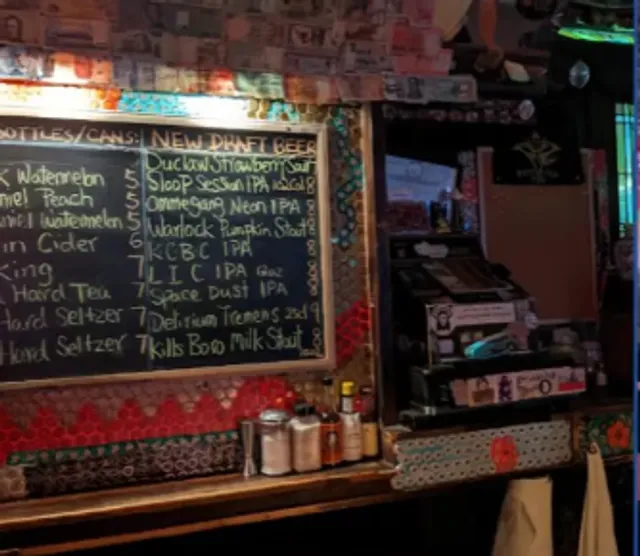 BOTTLES/CANS:
Watermelon 5
Peach 5
Watermelon 5
Cider 6
King 7
Hard Tea 7
Hard Seltzer 7
Hard Seltzer 7
NEW DRAFT BEER
Duclaw Strawberry Sour
Sloop Session IPA 8
Ommegang Neon IPA 8
Warlock Pumpkin Stout 8
KCBC IPA 8
LIC IPA 8
Space Dust IPA 8
Delirium Tremens 9
Kills Boro Milk Stout 8